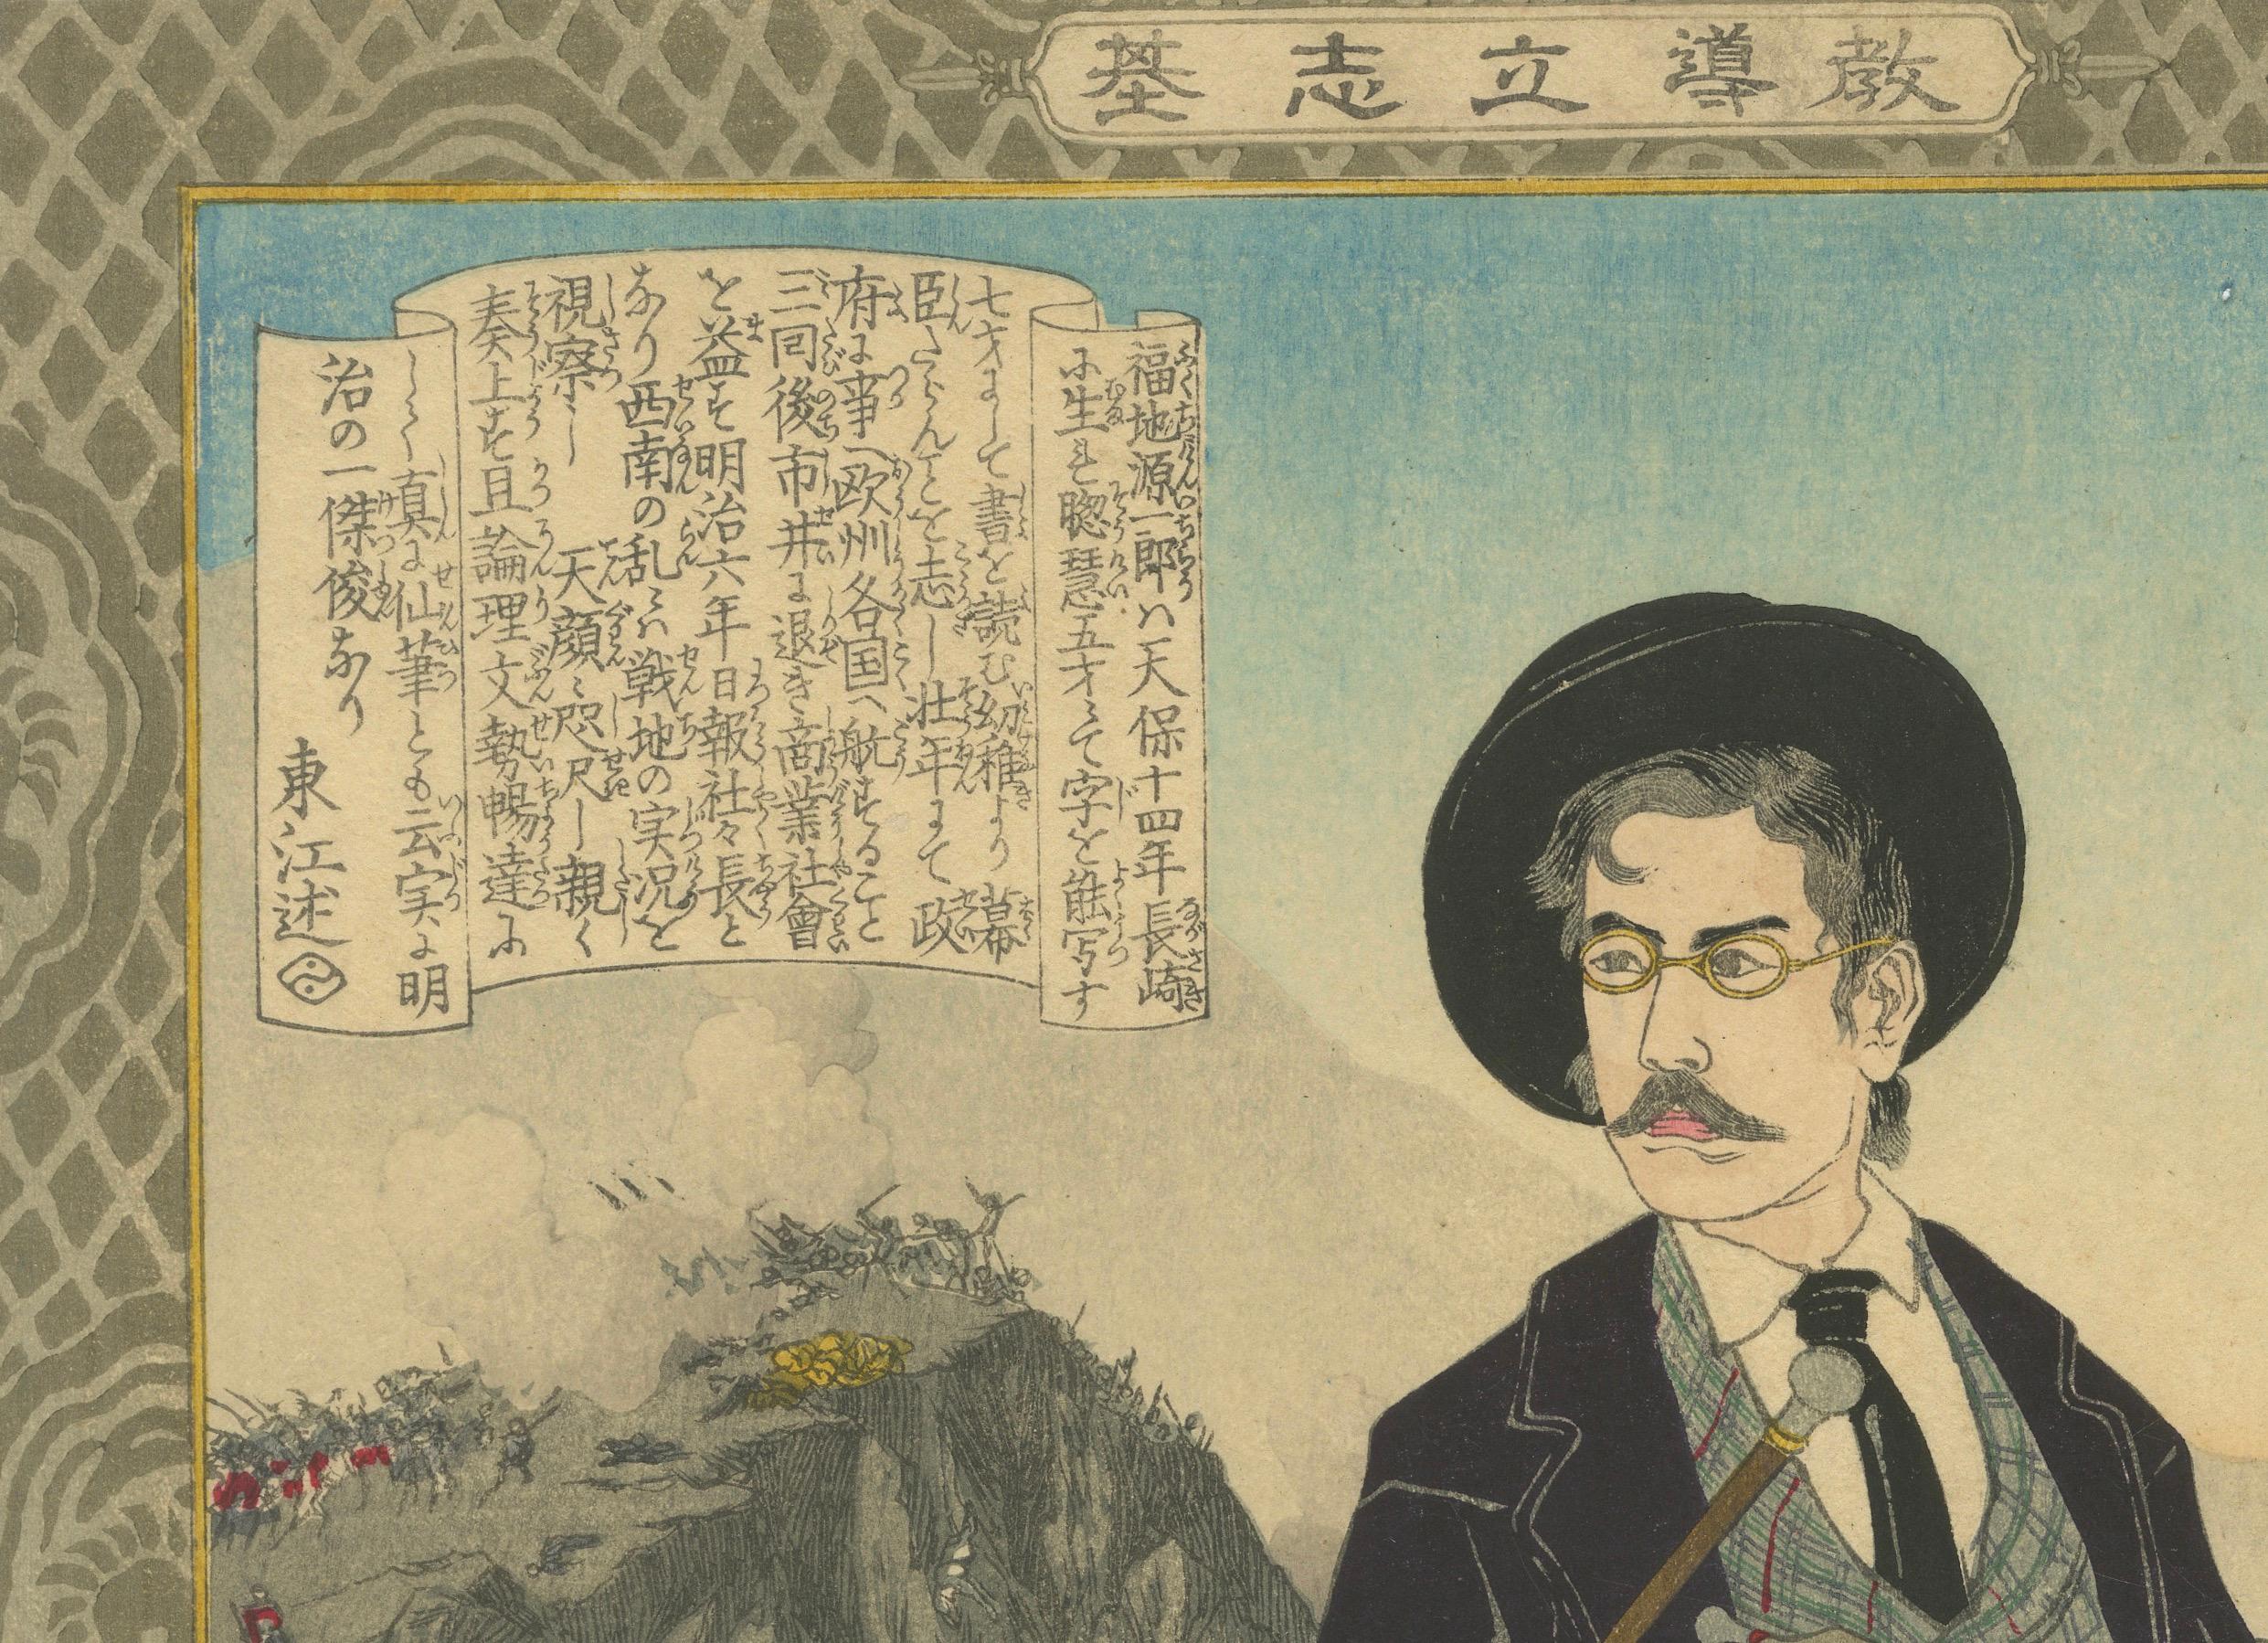 教導立志基
福地源一郎ハ天保十四年長崎
に生る聡慧五才にて字を能写す
七才にして書を読む幼稚より幕
臣たらんことを志し壮年にて政
府に事へ欧州各国へ航することヽ
三回後市井に退き商業社會
を益す明治六年日報社々長と
なり西南の乱にハ戦地の実況を
視察し天顔に咫尺し親く
奏上す且論理文勢暢達に
して真に仙筆とも云実に明
治の一傑俊なり
東江述